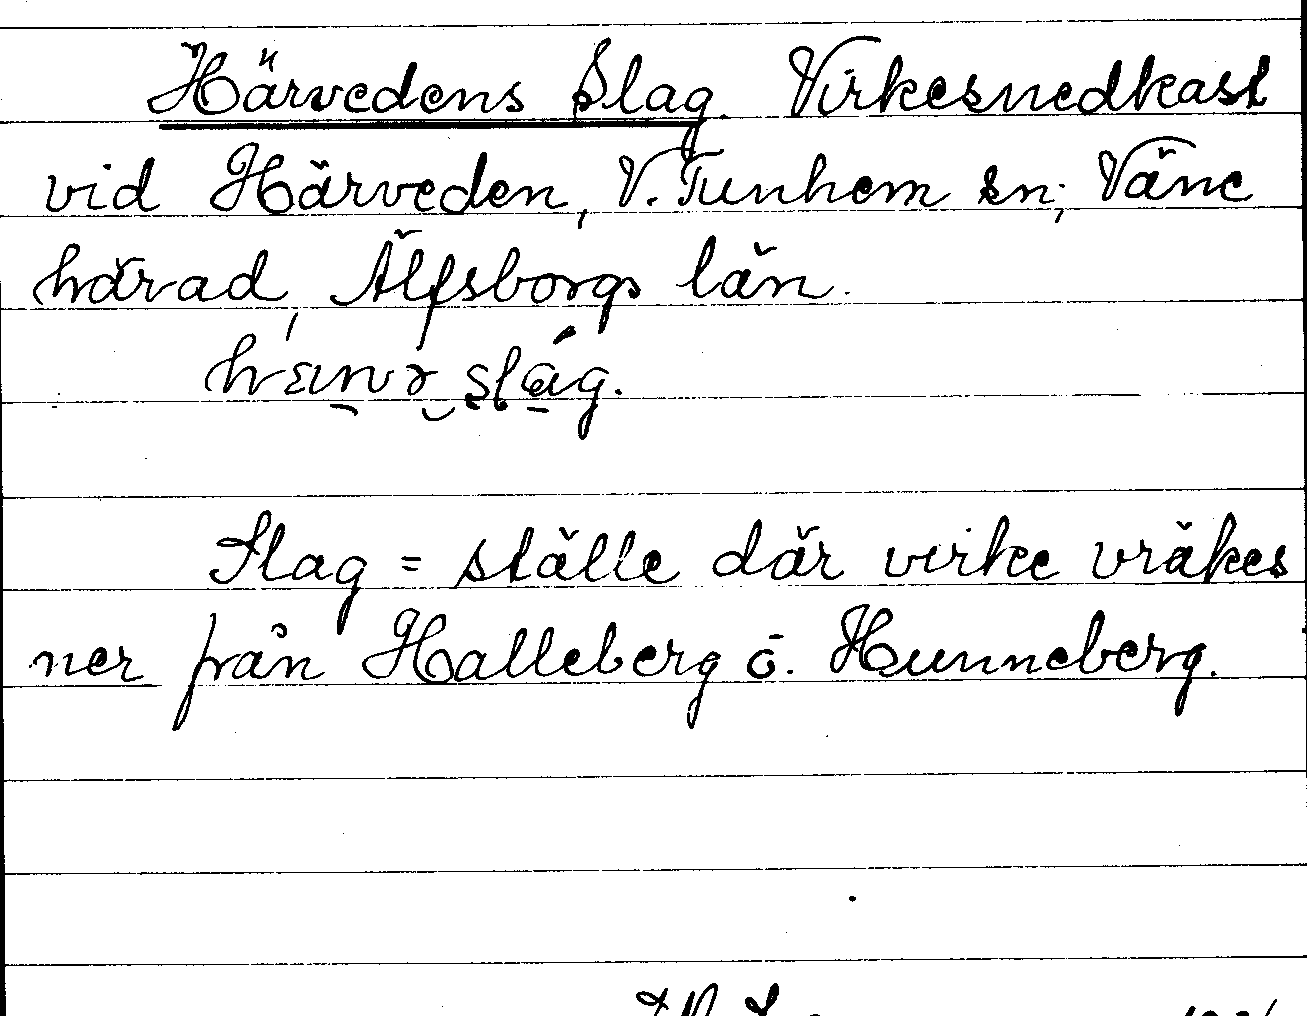 Härvedens Slag. Virkesnedkast
vid Härveden, V. Tunhem sn; Väne
härad, Älfsborgs län.
Slag = ställe där virke vräkes
ner från Halleberg o. Hunneberg.